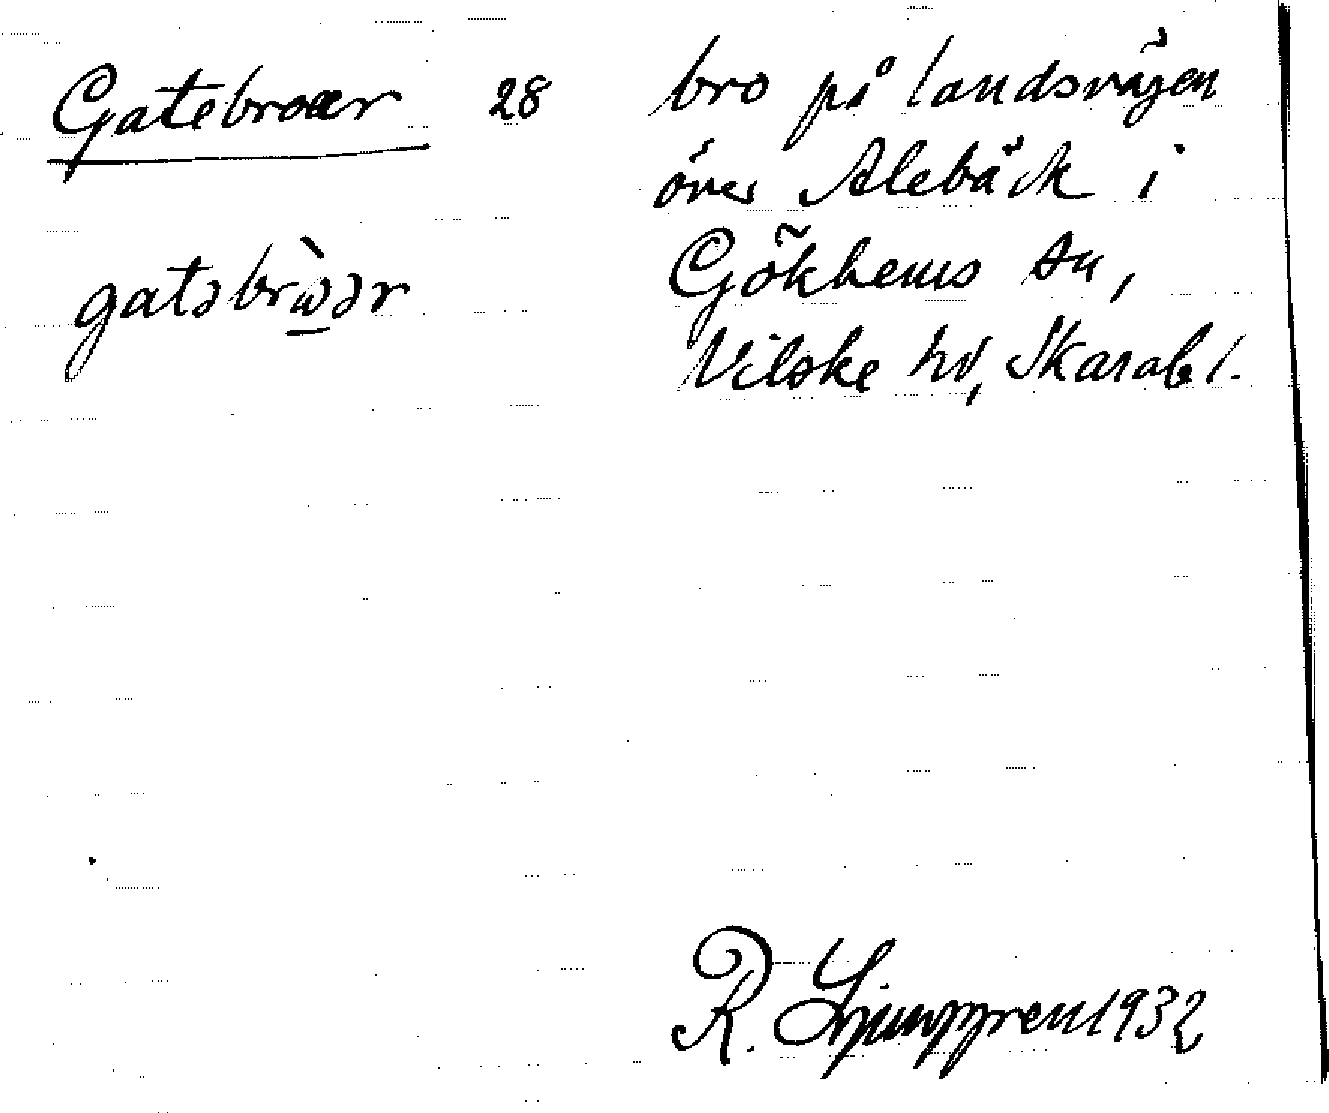 Gatebroær 28 bro på landsvägen
över Alebäck i
gatəbrὼ̲ər Gökhems sn,
Vilske hd, Skarabl.
R. Ljunggren 1932